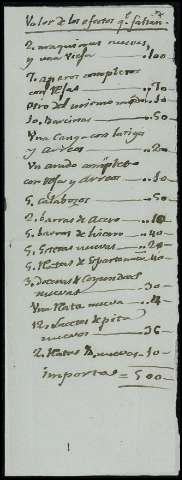 Valor de los efectos q.e faltan
2. maquinas nuevas
y una vieja 100
7. aperos completos
con rejas 70
Otro del mismo 30
10. Barcinas 50
Una Canga con latigo
y Arreos 20
Un arado completo
con reja y Arreos 50
5. Calabozos 50
2. barras de Acero 10
5. barras de hierro 40
5. nuevas 20
5. de Esparto 40
3. docenas de Coyundas
nuevas 30
Una nueva 4
12. de pita
nuevos 36
2. nuevos 10
importa = 500